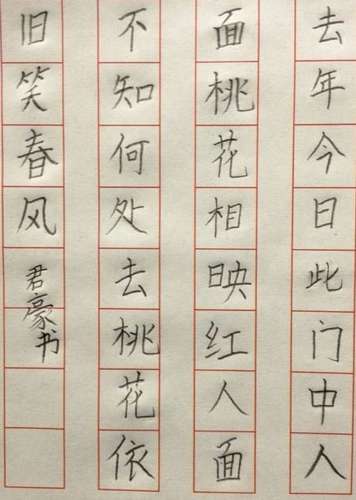 去年今日此门中人
面桃花相映红人面
不知何处去桃花依
旧笑春风君豪书